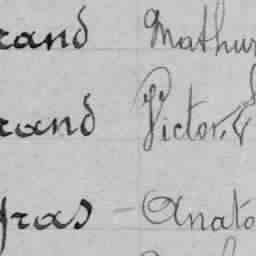 rand Mathur
rand Victor, V
fras - Anato